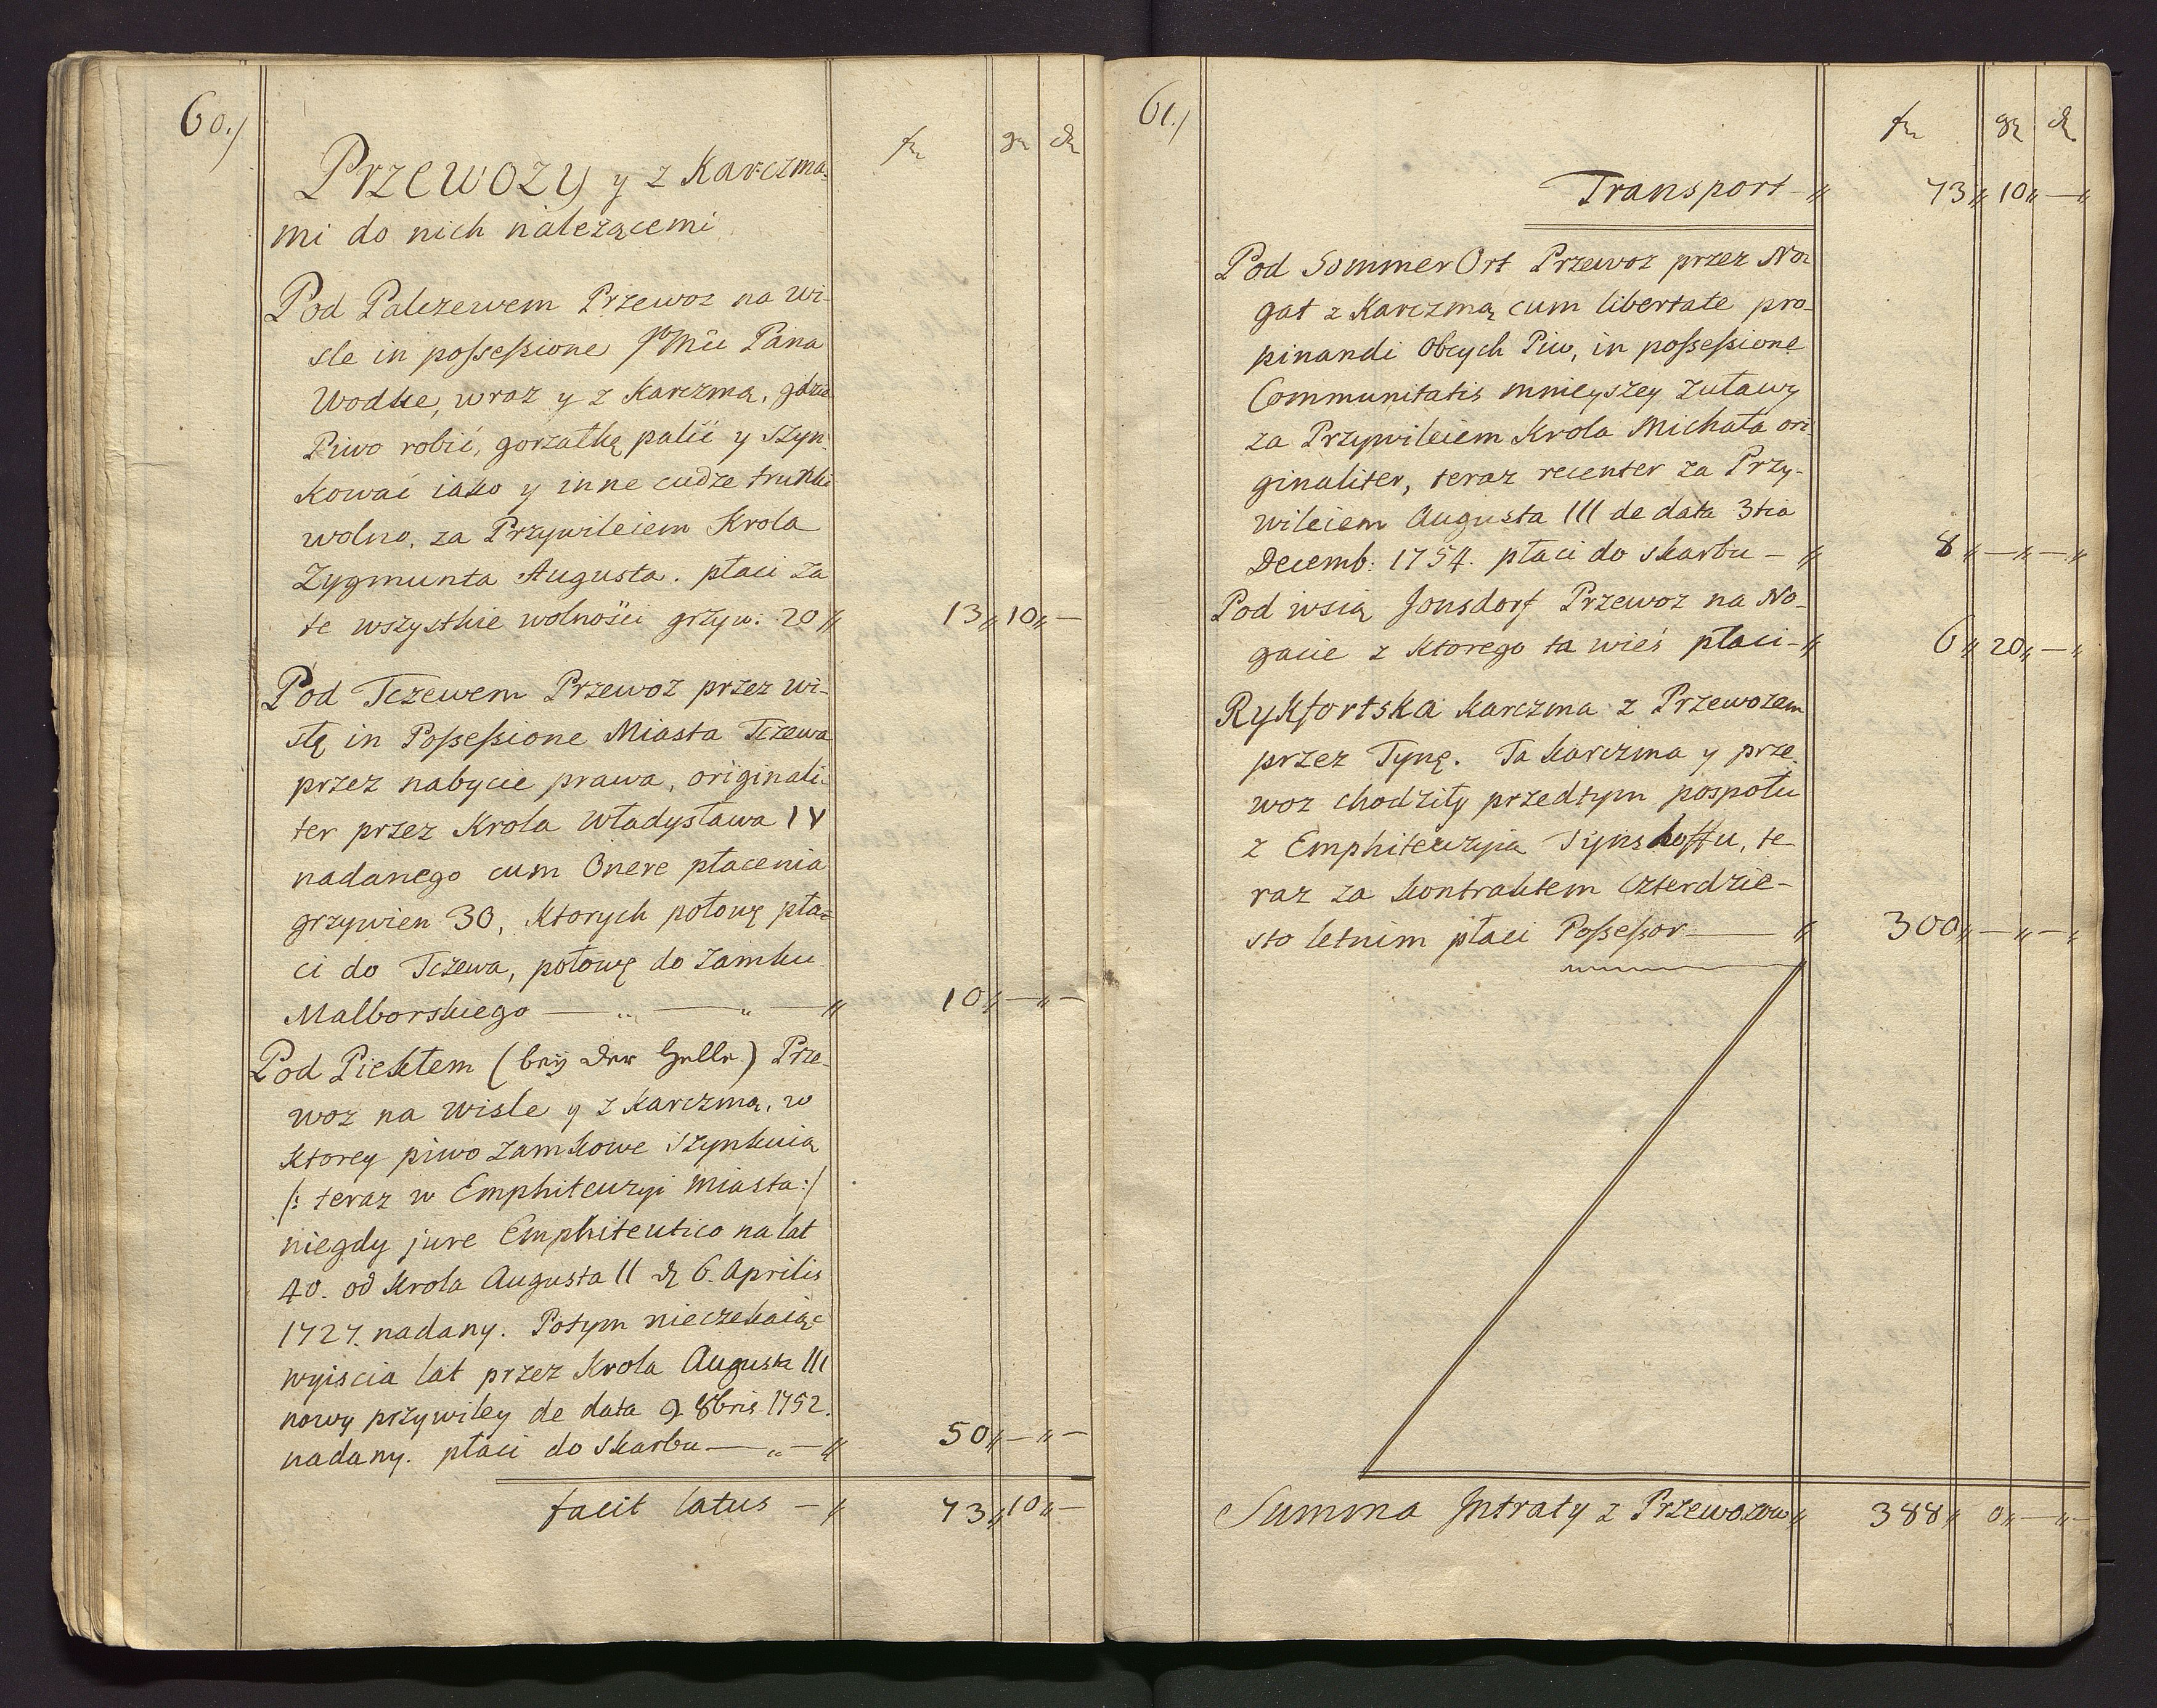 60./
fl gr d
Przewozy y z Karczma-
mi do nich należącemi
Pod Palczewem Przewoz na Wi-
śle in possessione JoMci Pana
Wodke, wraz y z Karczmą, gdzie
Piwo robić, gorzałkę palić y szyn-
kować iako y inne cudze trunki
wolno, za Przywileiem Krola
Zygmunta Augusta. płaci za
te wszystkie wolności grzyw: 20 〃 13〃 10〃 —
Pod Tczewem Przewoz przez Wi-
słę in Possessione Miasta Tczewa
przez nabycie prawa, originali-
ter przez Krola Władysława IV
nadanego cum Onere płacenia
grzywien 30, Ktorych połowę pła=
ci do Tczewa, połowę do Zamku
Malborskiego — „ — „ — 〃 10〃 —〃 —
Pod Piekłem (beÿ der Helle) Prze-
woz na Wisle y z Karczmą, w
Ktorey piwo zamkowe szynkuią
/: teraz w Emphiteuzyi Miasta:/
niegdy jure Emphiteutico na lat
40. od Krola Augusta II d. 6. Aprilis
1727. nadany. Potym nieczekaiąc
wyiscia lat przez Krola Augusta III
nowy przywiley de data 9 8bris 1752.
nadany. płaci do Skarbu — „ — 〃 50〃 —〃 —
facit latus — 〃 73〃 10〃 —
61./
fl gr d
Transport — 〃 73〃 10〃 —〃
Pod SommerOrt Przewoz przez No-
gat z Karczmą cum libertate pro-
pinandi Obcych Piw, in possessione
Communitatis mnieyszey Zuławy
za Przywileiem Krola Michała ori-
ginaliter, teraz recenter za Przy-
wileiem Augusta III de data 3tia
Decemb: 1754. płaci do skarbu — 〃 8〃 —〃 —〃
Pod wsią Jonsdorf Przewoz na No-
gacie z Ktorego ta wieś płaci — 〃 6〃 20〃 —〃
Rykfortska Karczma z Przewozem
przez Tynę. Ta karczma y prze-
woz chodziły przedtym pospołu
z Emphiteuzyia Tynshoffu, te-
raz za kontraktem Czterdzie-
sto letnim płaci Possessor — 〃 300〃 —〃 —〃
Summa Intraty z Przewozow 〃 388〃 0〃 —〃 —